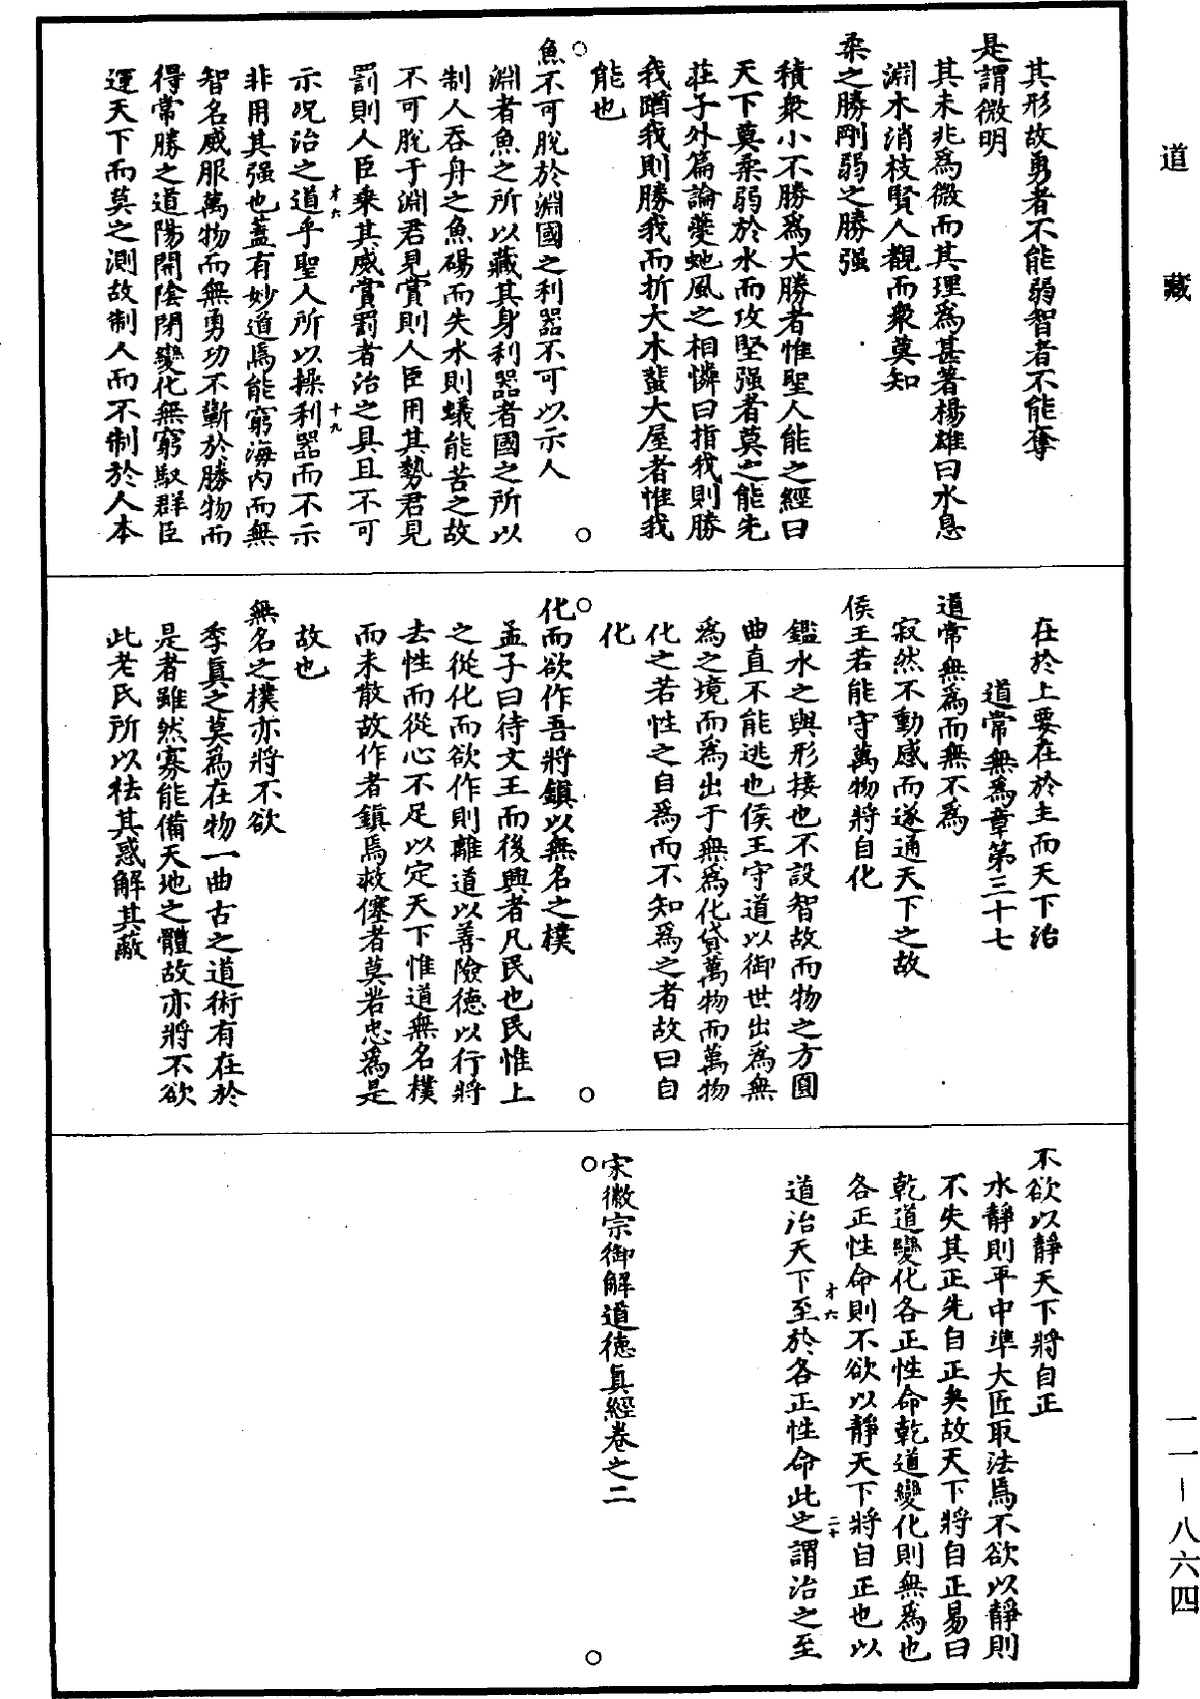 道藏
其形故勇者不能弱智者不能奪
是謂微明
其未兆為微而其理為甚著楊雄曰水息
淵木消枝賢人觀而衆莫知
柔之勝剛弱之勝强
積衆小不勝為大勝者惟聖人能之經曰
天下莫柔弱於水而攻堅强者莫之能先
莊子外篇論夔虵風之相憐曰指我則勝
我䠓我則勝我而折大木蜚大屋者惟我
能也
魚不可脫於淵國之利器不可以示人
淵者魚之所以藏其身利器者國之所以
制人吞舟之魚碭而失水則蟻能苦之故
不可脫于淵君見賞則人臣用其勢君見
罰則人臣乘其威賞罰者治之具且不可
示况治之道乎聖人所以操利器而不示
才六
十九
非用其强也蓋有妙道焉能窮海内而無
智名威服萬物而無勇功不蘄於勝物而
得常勝之道陽開陰閉變化無窮馭群臣
運天下而莫之測故制人而不制於人本
在於上要在於主而天下治
道常無為章第三十七
道常無為而無不為
寂然不動感而遂通天下之故
侯王若能守萬物將自化
鑑水之與形接也不設智故而物之方圓
曲直不能逃也侯王守道以御世出為無
為之境而為出于無為化貸萬物而萬物
化之若性之自為而不知為之者故曰自
化
化而欲作吾將鎮以無名之樸
孟子曰待文王而後興者凡民也民惟上
之從化而欲作則離道以善險德以行將
去性而從心不足以定天下惟道無名樸
而未散故作者鎮焉救僿者莫若忠為是
故也
無名之樸亦將不欲
季真之莫為在物一曲古之道術有在於
是者雖然寡能備天地之體故亦將不欲
此老氏所以祛其惑解其蔽
不欲以靜天下將自正
水靜則平中準大匠取法焉不欲以靜則
不失其正先自正矣故天下將自正易曰
乾道變化各正性命乾道變化則無為也
各正性命則不欲以靜天下將自正也以
才六
二十
道治天下至於各正性命此之謂治之至
宋徽宗御解道德真經卷之二
一一－八六四